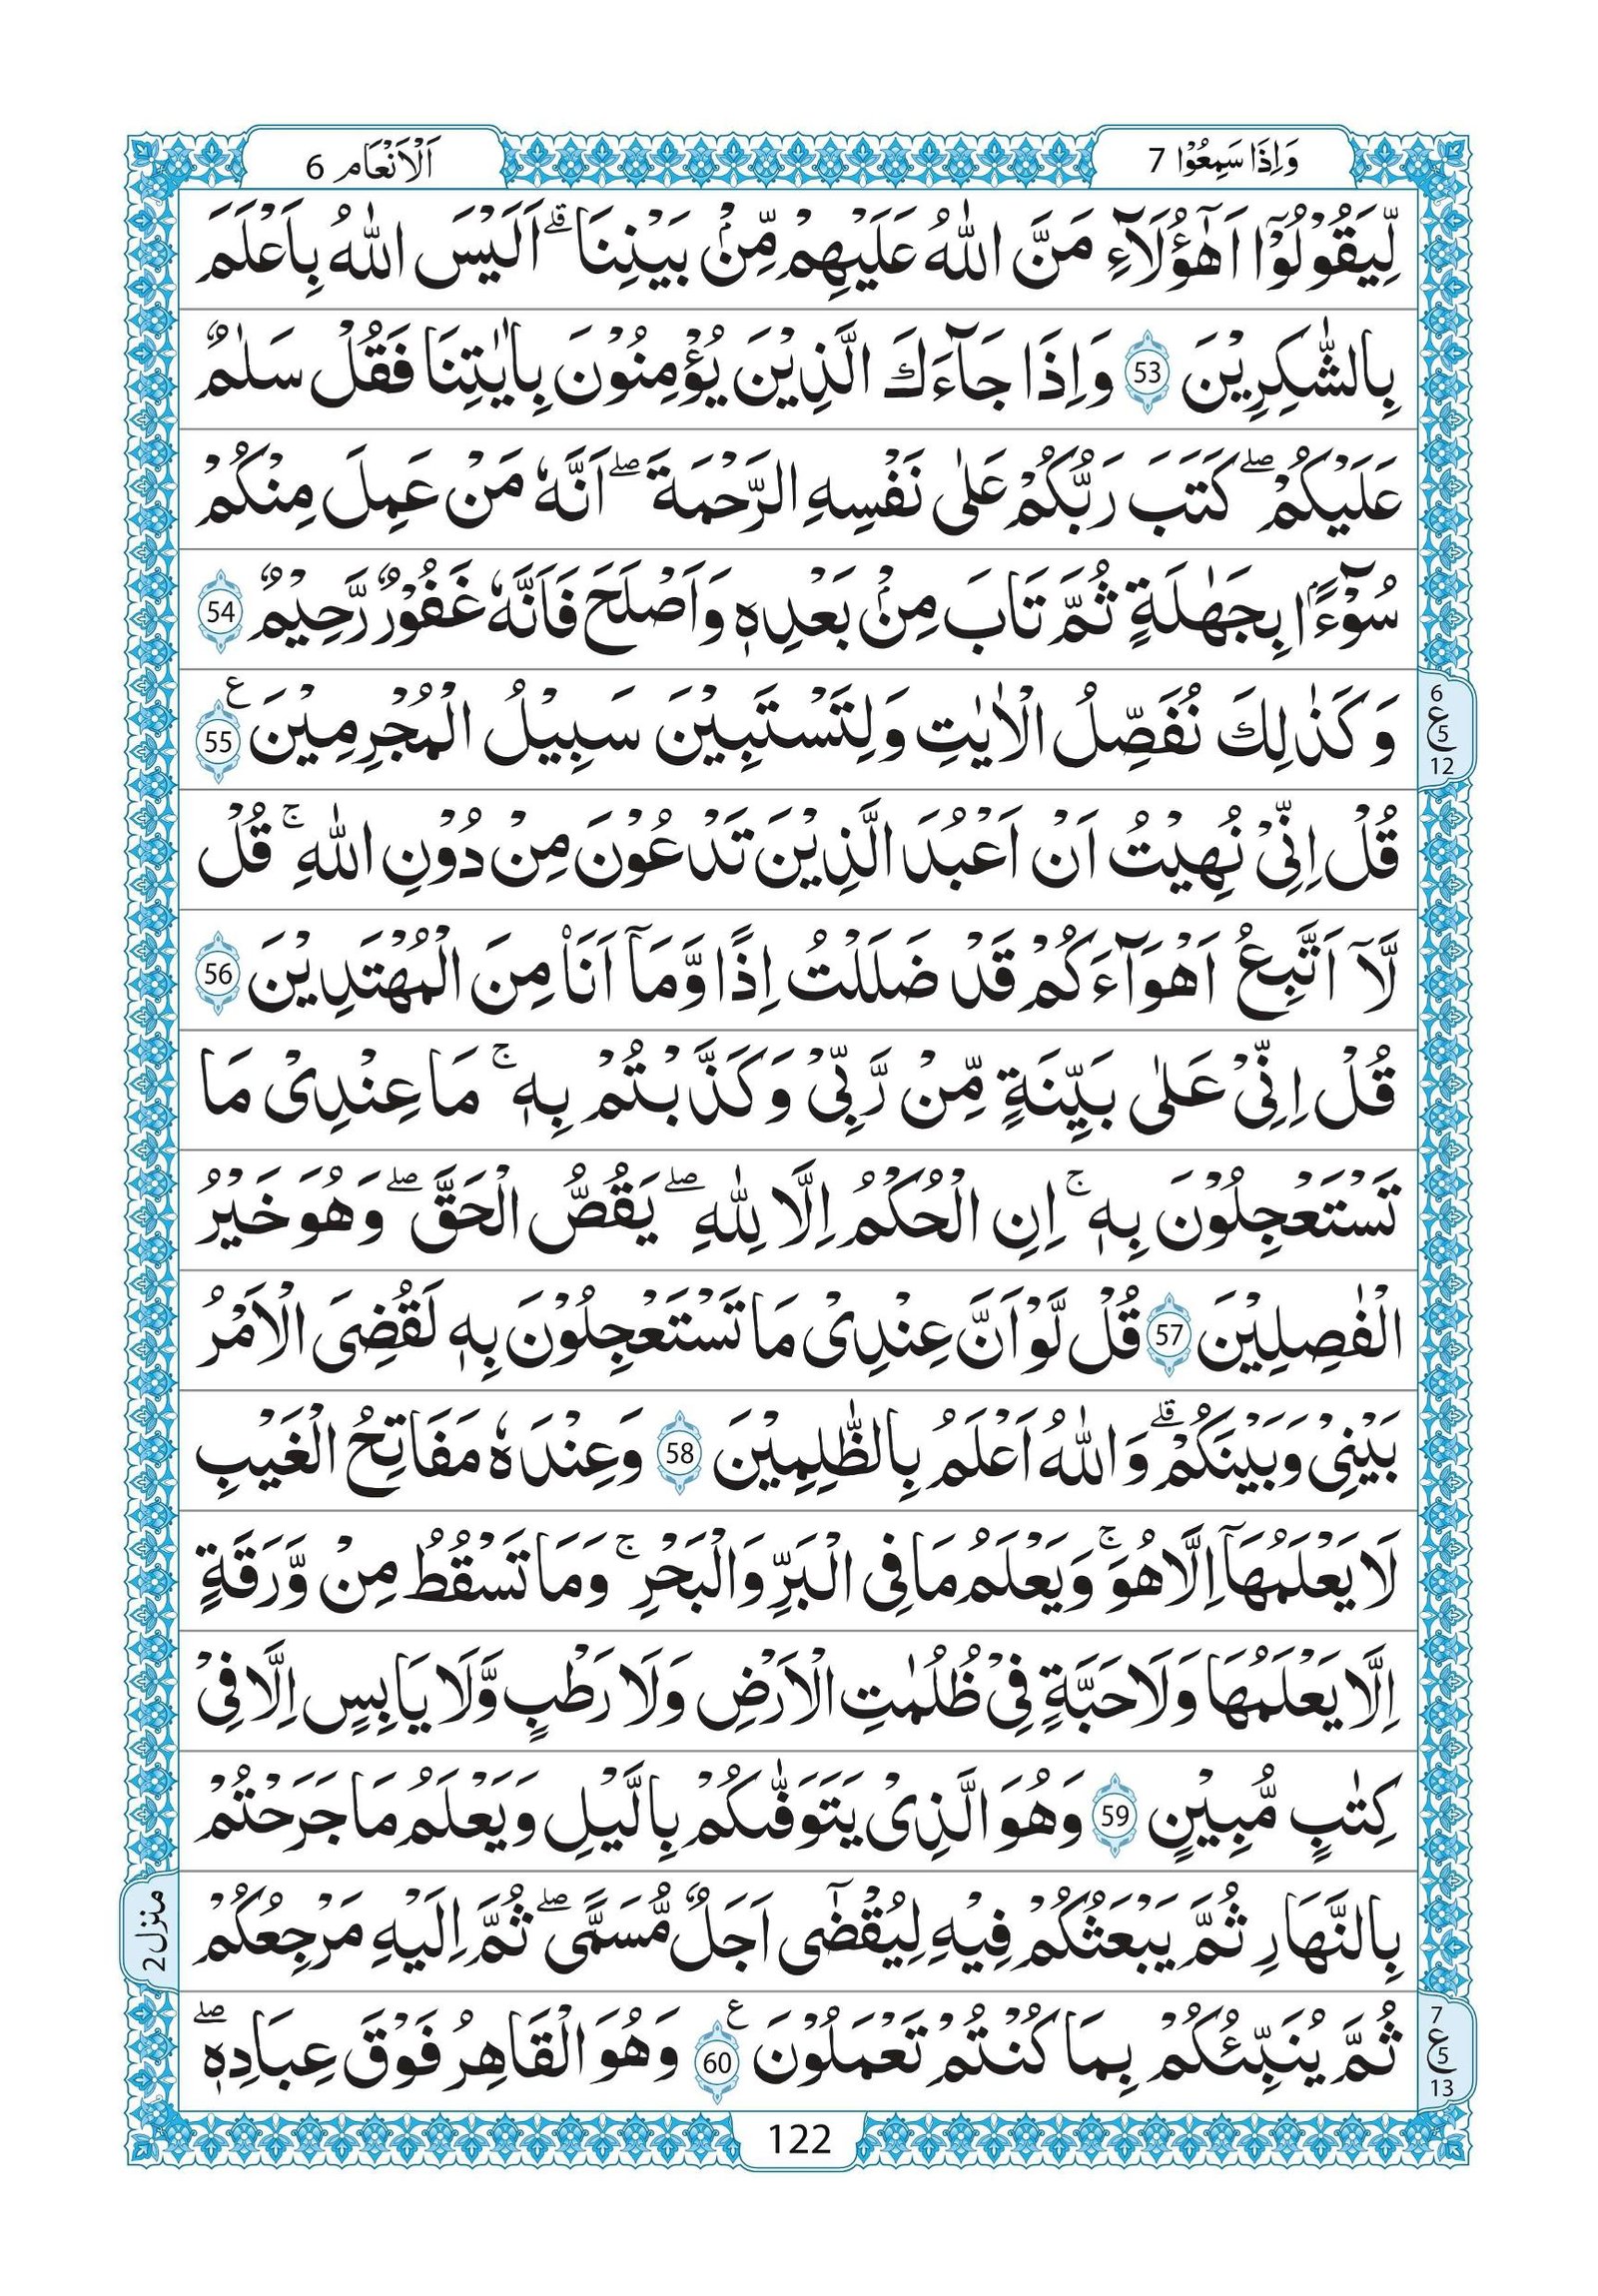 وَاِذَا سَمِعُوْا 7
اَلْاَنْعَام 6
لِّيَقُوْلُوْۤا اَهٰۤؤُلَآءِ مَنَّ اللّٰهُ عَلَيْهِمْ مِّنْۢ بَيْنِنَا ؕ اَلَيْسَ اللّٰهُ بِاَعْلَمَ
بِالشّٰكِرِيْنَ 53 وَاِذَا جَآءَكَ الَّذِيْنَ يُؤْمِنُوْنَ بِاٰيٰتِنَا فَقُلْ سَلٰمٌ
عَلَيْكُمْ ۖ كَتَبَ رَبُّكُمْ عَلٰى نَفْسِهِ الرَّحْمَةَ ۖ اَنَّهٗ مَنْ عَمِلَ مِنْكُمْ
سُوْٓءًۢا بِجَهٰلَةٍ ثُمَّ تَابَ مِنْۢ بَعْدِهٖ وَاَصْلَحَ فَاَنَّهٗ غَفُوْرٌ رَّحِيْمٌ 54
وَكَذٰلِكَ نُفَصِّلُ الْاٰيٰتِ وَلِتَسْتَبِيْنَ سَبِيْلُ الْمُجْرِمِيْنَ ع 55
6 ع 5 12
قُلْ اِنِّيْ نُهِيْتُ اَنْ اَعْبُدَ الَّذِيْنَ تَدْعُوْنَ مِنْ دُوْنِ اللّٰهِ ۚ قُلْ
لَّاۤ اَتَّبِعُ اَهْوَآءَكُمْ قَدْ ضَلَلْتُ اِذًا وَّمَاۤ اَنَا۠ مِنَ الْمُهْتَدِيْنَ 56
قُلْ اِنِّيْ عَلٰى بَيِّنَةٍ مِّنْ رَّبِّيْ وَكَذَّبْتُمْ بِهٖ ۚ مَا عِنْدِيْ مَا
تَسْتَعْجِلُوْنَ بِهٖ ۚ اِنِ الْحُكْمُ اِلَّا لِلّٰهِ ۖ يَقُصُّ الْحَقَّ ۖ وَهُوَ خَيْرُ
الْفٰصِلِيْنَ 57 قُلْ لَّوْ اَنَّ عِنْدِيْ مَا تَسْتَعْجِلُوْنَ بِهٖ لَقُضِيَ الْاَمْرُ
بَيْنِيْ وَبَيْنَكُمْ ۗ وَاللّٰهُ اَعْلَمُ بِالظّٰلِمِيْنَ 58 وَعِنْدَهٗ مَفَاتِحُ الْغَيْبِ
لَا يَعْلَمُهَاۤ اِلَّا هُوَ ۚ وَيَعْلَمُ مَا فِي الْبَرِّ وَالْبَحْرِ ۚ وَمَا تَسْقُطُ مِنْ وَّرَقَةٍ
اِلَّا يَعْلَمُهَا وَلَا حَبَّةٍ فِيْ ظُلُمٰتِ الْاَرْضِ وَلَا رَطْبٍ وَّلَا يَابِسٍ اِلَّا فِيْ
كِتٰبٍ مُّبِيْنٍ 59 وَهُوَ الَّذِيْ يَتَوَفّٰىكُمْ بِالَّيْلِ وَيَعْلَمُ مَا جَرَحْتُمْ
بِالنَّهَارِ ثُمَّ يَبْعَثُكُمْ فِيْهِ لِيُقْضٰۤى اَجَلٌ مُّسَمًّى ۖ ثُمَّ اِلَيْهِ مَرْجِعُكُمْ
منزل 2
ثُمَّ يُنَبِّئُكُمْ بِمَا كُنْتُمْ تَعْمَلُوْنَ ع 60 وَهُوَ الْقَاهِرُ فَوْقَ عِبَادِهٖ ۖ
7 ع 5 13
122